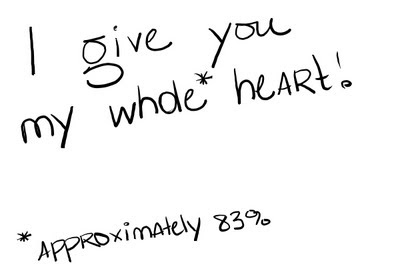 I give you
my whole* heART!
*APPROXimAtely 83%